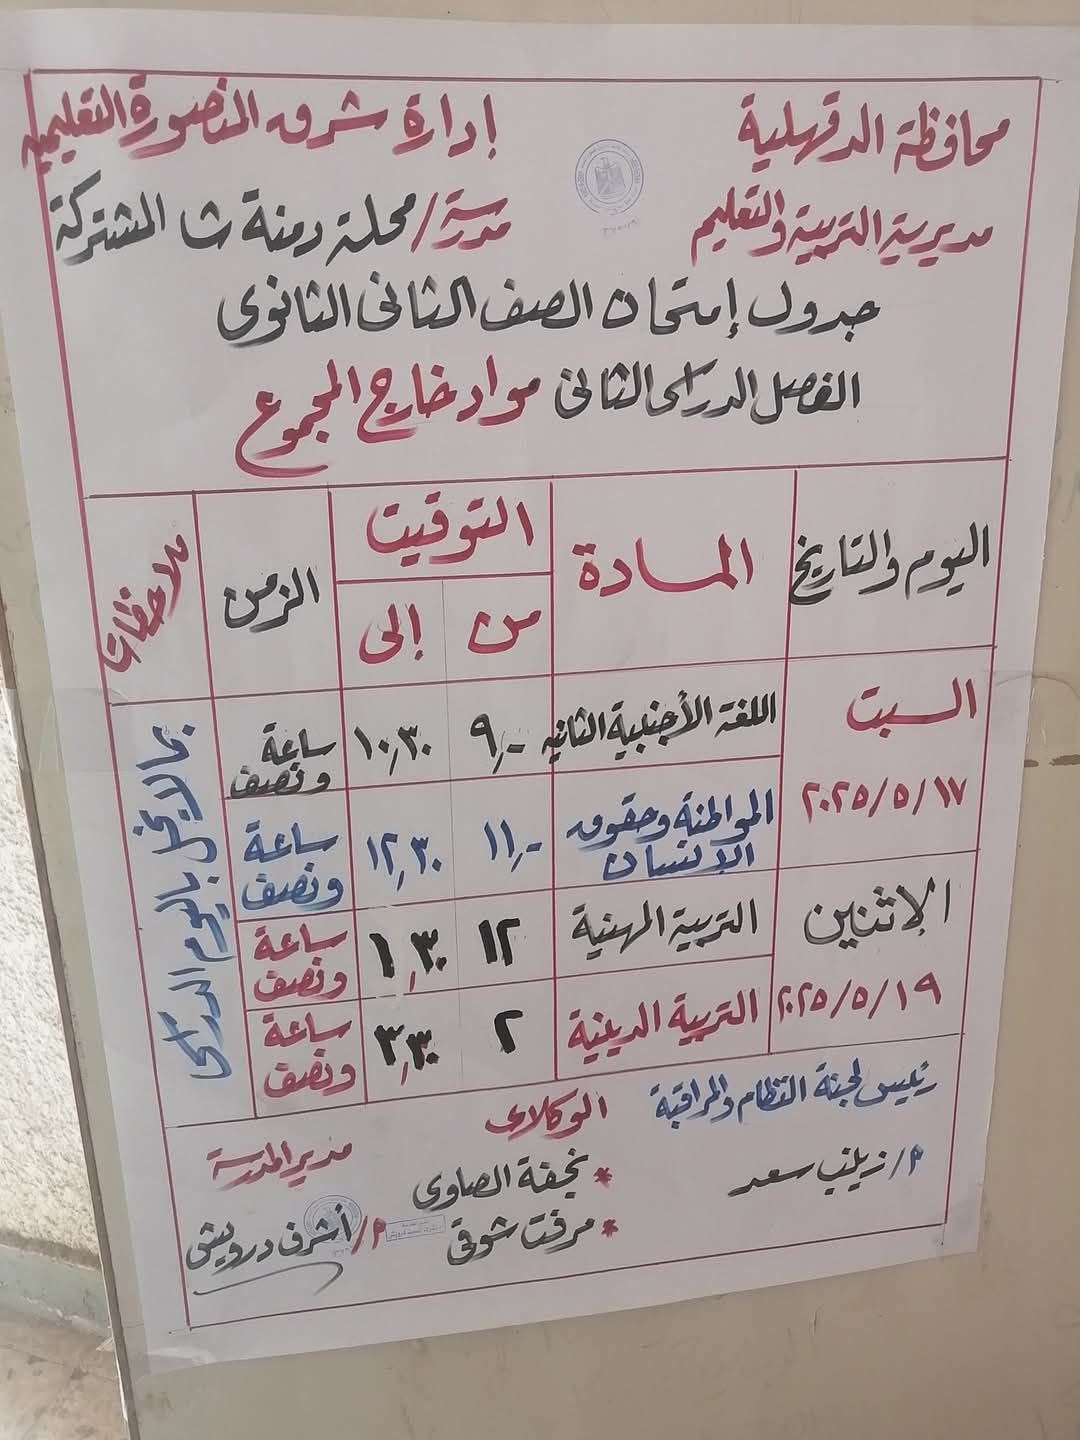 محافظة الدقهلية
إدارة شرق المنصورة التعليمية
مديرية التربية والتعليم
مدرسة/ محلة دمنة ث المشتركة
جدول إمتحان الصف الثانى الثانوى
الفصل الدراسى الثانى مواد خارج المجموع
اليوم والتاريخ
المادة
التوقيت
من
إلى
الزمن
ملاحظات
السبت
٢٠٢٥/٥/١٧
اللغة الأجنبية الثانية
٩,-
١٠,٣٠
ساعة
ونصف
المواطنة وحقوق
الإنسان
١١,-
١٢,٣٠
ساعة
ونصف
الإثنين
٢٠٢٥/٥/١٩
التربية المهنية
١٢
١,٣٠
ساعة
ونصف
التربية الدينية
٢
٣,٣٠
ساعة
ونصف
بما لا يخل باليوم الدراسى
رئيس لجنة النظام والمراقبة
م/ زينب سعد
الوكلاء
* نجفة الصاوى
* مرفت شوقى
مدير المدرسة
م/ أشرف درويش